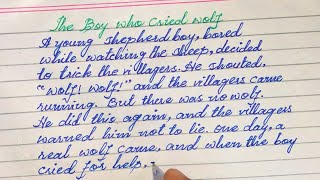 The Boy who cried wolf
A young shepherd boy, bored
while watching the sheep, decided
to trick the villagers. He shouted,
"wolf! wolf!" and the villagers came
running. But there was no wolf.
He did this again, and the villagers
warned him not to lie. one day, a
real wolf came, and when the boy
cried for help,